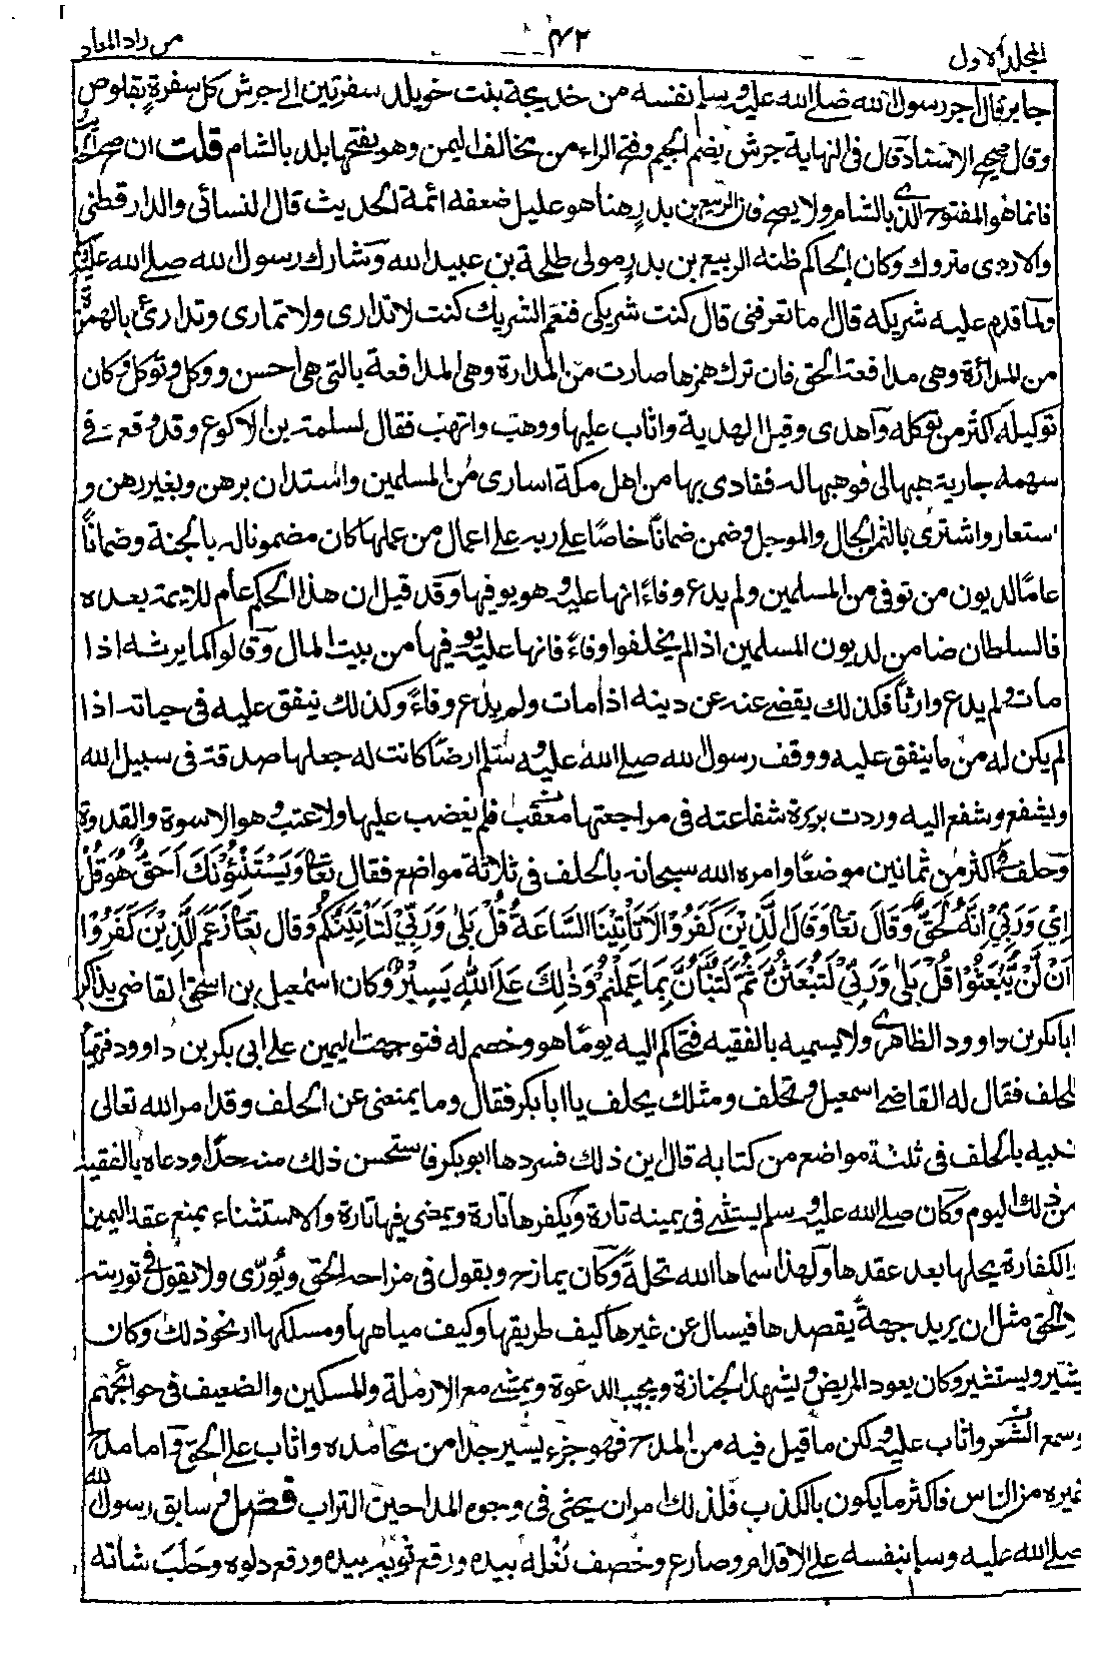 المجلد الاول ٤٢ من زاد المعاد
جابر قال اجر رسول الله صلے الله علیه وسلم نفسه من خديجة بنت خويلد سفرتين الى جرش كل سفرة بقلوص
وقال صحيح الاسناد قال فى النهاية جرش بضم الجيم وفتح الراء من مخاليف اليمن وهو بفتحها بلد بالشام قلت ان صح الحديث
فانما هو المفتوح الذى بالشام ولا يصح فان الربيع بن بدر هذا هو عليل ضعفه ائمة الحديث قال النسائى والدارقطنى
والازدى متروك وكان الحاكم ظنه الربيع بن بدر مولى طلحة بن عبيد الله وشارك رسول الله صلے الله عليه وسلم
ولما قدم عليه شريكه قال اما تعرفنى قال كنت شريكى فنعم الشريك كنت لا تدارى ولا تمارى وتدارئ بالهمزة
من المدارأة وهى مدافعة الحق فان ترك همزها صارت من المداراة وهى المدافعة بالتى هى احسن ووكل وتوكل وكان
توكيله اكثر من توكله وآهدى وقبل الهدية واثاب عليها ووهب واتهب فقال لسلمة بن الاكوع وقد وقع فى
سهمه جارية هبها لى فوهبها له ففادى بها من اهل مكة اسارى من المسلمين واستدان برهن وبغير رهن و
استعار واشترى بالثمن الحال والموجل وضمن ضمانا خاصًا على ربه على اعمال من عملها كان مضمونا له بالجنة وضمانًا
عامًا لديون من توفى من المسلمين ولم يدع وفاءً انها عليه وهو يوفيها وقد قيل ان هذا الحكم عام للايمة بعده
فالسلطان ضامن لديون المسلمين اذا لم يخلفوا وفاءً فانها عليه يوفيها من بيت المال وقالوا كما يرثه اذا
مات ولم يدع وارثًا فكذلك يقضے عنه عن دينه اذا مات ولم يدع وفاءً وكذلك ينفق عليه فى حياته اذا
لم يكن له من ما ينفق عليه ووقف رسول الله صلے الله عليه وسلم ارضًا كانت له جعلها صدقة فى سبيل الله
ويشفع وشفع اليه وردت بريرة شفاعته فى مراجعتها مغيث فلم يغضب عليها ولا عتب وهو الاسوة والقدوة
وحلف فى اكثر من ثمانين موضعًا وامره الله سبحانه بالحلف فى ثلاثة مواضع فقال تعا وَيَسْتَنْبِئُوْنَكَ اَحَقٌّ هُوَ قُلْ
اِيْ وَرَبِّيْ اِنَّهٗ لَحَقٌّ وَقَالَ تعا وَقَالَ الَّذِيْنَ كَفَرُوْا لَا تَأْتِيْنَا السَّاعَةُ قُلْ بَلٰى وَرَبِّيْ لَتَأْتِيَنَّكُمْ وقال تعا زَعَمَ الَّذِيْنَ كَفَرُوْا
اَنْ لَنْ يُّبْعَثُوْا قُلْ بَلٰى وَرَبِّيْ لَتُبْعَثُنَّ ثُمَّ لَتُنَبَّؤُنَّ بِمَا عَمِلْتُمْ وَذٰلِكَ عَلَى اللّٰهِ يَسِيْرٌ وكان اسمعيل بن اسحٰق القاضى يذاكر
ابا بكر بن داوود الظاهرى ولا يسميه بالفقيه فتحاكم اليه يومًا هو وخصم له فتوجهت اليمين على ابى بكر بن داوود فتهيأ
للحلف فقال له القاضى اسمعيل وتحلف ومثلك يحلف يا ابا بكر فقال وما يمنعنى عن الحلف وقد امر الله تعالى
نبيه بالحلف فى ثلثة مواضع من كتابه قال اين ذلك فسردها ابو بكر فاستحسن ذلك منه جدًا ودعاه بالفقيه
من ذلك اليوم وكان صلے الله عليه وسلم يستثنے فى يمينه تارة ويكفرها تارة ويمضى فيها تارة والاستثناء يمنع عقد اليمين
والكفارة يحلها بعد عقدها ولهذا سماها الله تحلةً وكان يمازح ويقول فى مزاحه الحق ويُورّى ولا يقول فى توريته
الا الحق مثل ان يريد جهةً يقصدها فيسال عن غيرها كيف طريقها وكيف مياهها ومسلكها او نحو ذلك وكان
يشير ويستشير وكان يعود المريض ويشهد الجنازة ويجيب الدعوة ويمشے مع الارملة والمسكين والضعيف فى حوائجهم
وسمع الشعر واثاب عليه ولكن ما قيل فيه من المدح فهو جزء يسير جدا من محامده واثاب على الحق واما مدح
غيره من الناس فاكثر ما يكون بالكذب فلذلك امر ان يحثى فى وجوه المداحين التراب فصل و سابق رسول الله
صلے الله عليه وسلم بنفسه على الاقدام وصارع وخصف نعله بيده ورقع ثوبه بيده ورقع دلوه وحلب شاته